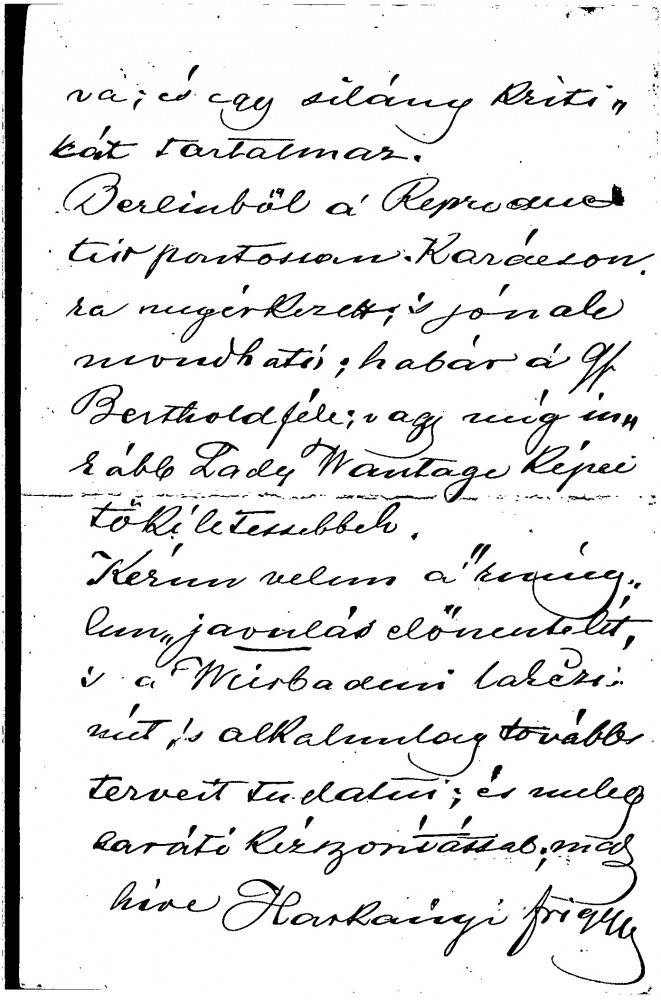 va; és egy silány kriti„
kát tartalmaz.
Berlinből a Reproduc
tió pontosan Karácson
ra megérkezett; s jónak
mondható; habár a gf
Berthold féle; vagy még in„
kább Lady Wantage képei
tökéletessebbek.
Kérem velem a
javulás előmenetelét,
s a Wiesbadeni lakczi
mét, s alkalmilag további
terveit tudatni; és meleg
baráti kézszorítással, mad
híve Harkányi Frigyes